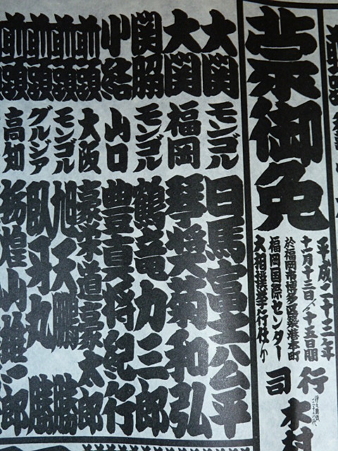 蒙御免
平成二十三年
十一月十三日ヨリ十五日間
於福岡市博多区築港本町
福岡国際センター
大相撲挙行仕候
行司
木村
大関 モンゴル 日馬富士公平
大関 福岡 琴奨菊和弘
関脇 モンゴル 鶴竜力三郎
小結 山口 豊真将紀行
前頭 大阪 豪栄道豪太郎
前頭 モンゴル 旭天鵬勝
前頭 グルジア 臥牙丸勝
前頭 高知 栃煌山雄一郎